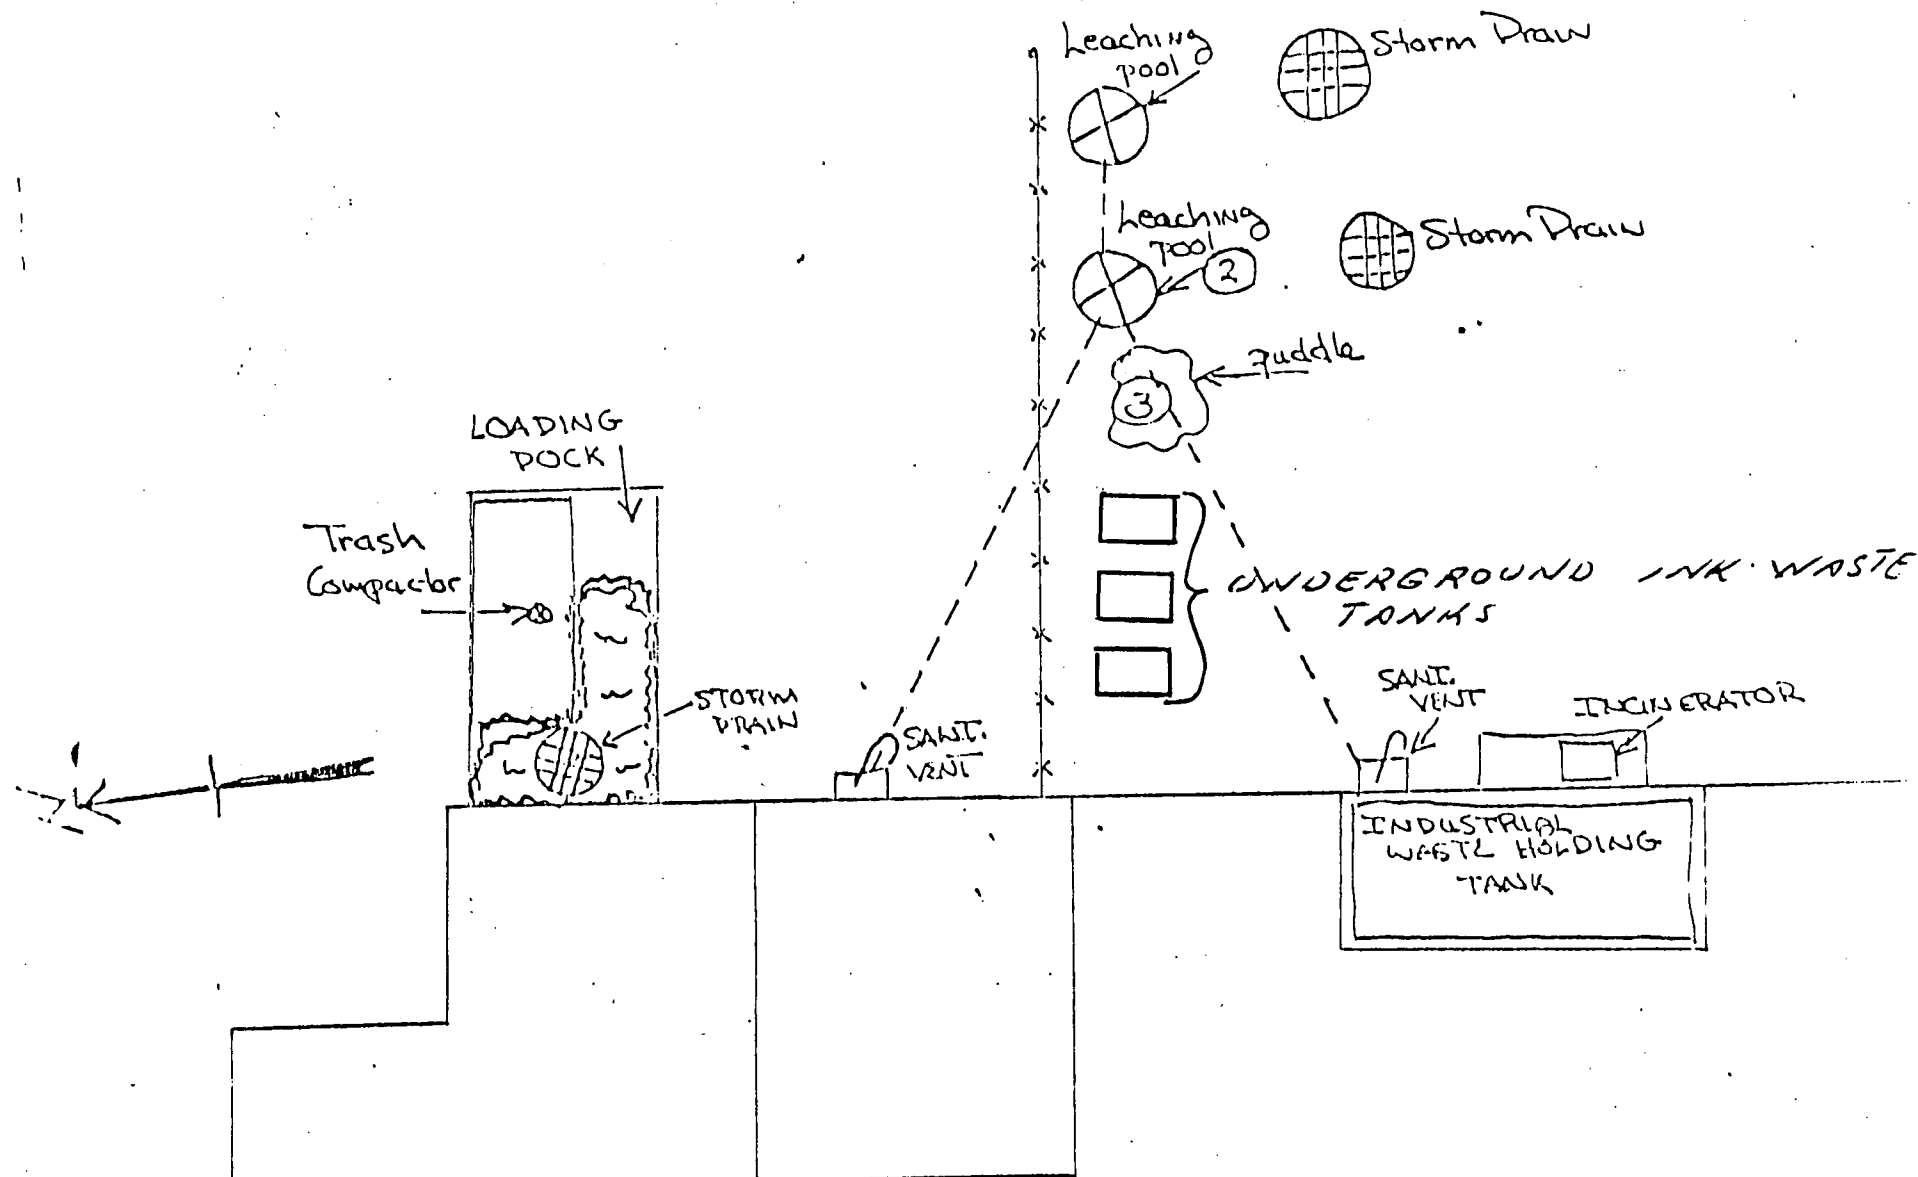 Leaching
pool
Storm Drain
Leaching
pool
2
Storm Drain
Puddle
3
LOADING
DOCK
Trash
Compactor
UNDERGROUND INK WASTE
TANKS
STORM
DRAIN
SANI.
VENT
SANI.
VENT
INCINERATOR
INDUSTRIAL
WASTE HOLDING
TANK